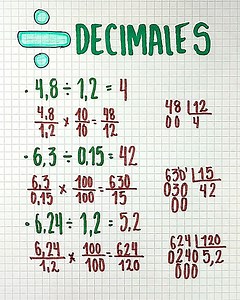 ÷ DECIMALES
· 4,8 ÷ 1,2 = 4
4,8/1,2 × 10/10 = 48/12
48 |12
00 4
· 6,3 ÷ 0,15 = 42
6,3/0,15 × 100/100 = 630/15
630 |15
030 42
00
· 6,24 ÷ 1,2 = 5,2
6,24/1,2 × 100/100 = 624/120
624 |120
0240 5,2
000